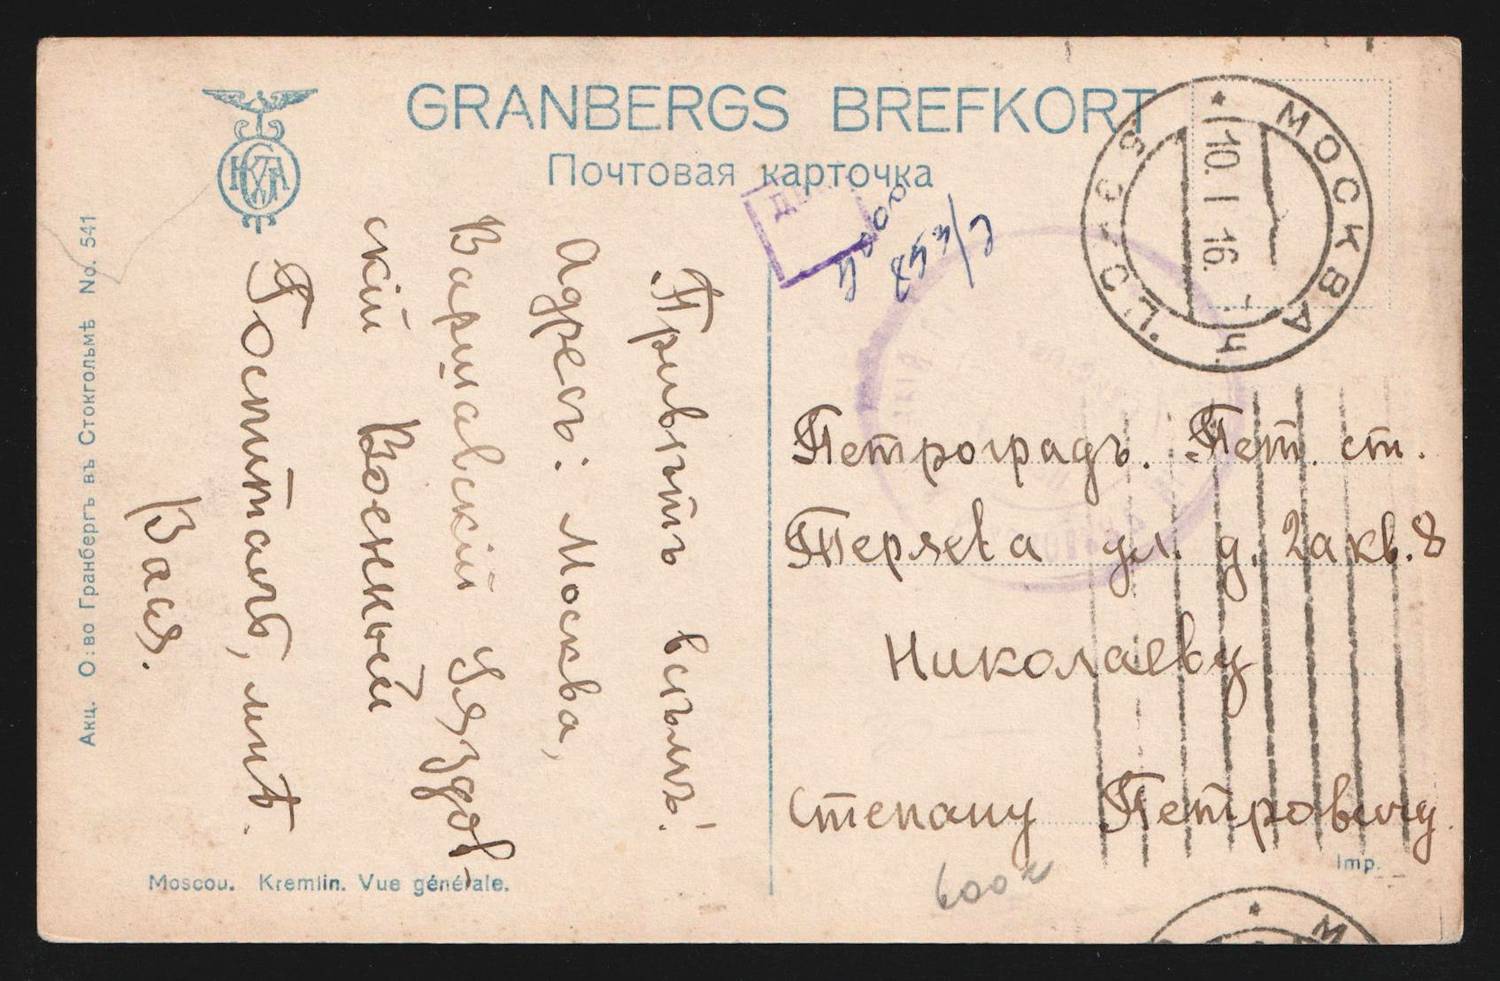 GRANBERGS BREFKORT
Почтовая карточка
Акц. О:во Гранбергъ въ Стокгольмѣ No. 541
Привѣтъ всѣмъ!
Адресъ: Москва,
Варшавскій Уяздов-
скій Военный
Госпиталь, мнѣ.
Вася.
Moscou. Kremlin. Vue générale.
МОСКВА
10. I 16.
Петроградъ. Пет. ст.
Теряева ул. д. 2а кв. 8
Николаеву
Степану Петровичу
Imp.
600